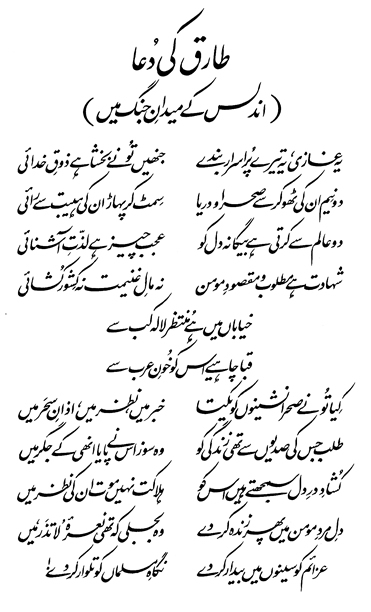 طارق کی دُعا
(اندلس کے میدانِ جنگ میں)
یہ غازی، یہ تیرے پُراسرار بندے جنھیں تُو نے بخشا ہے ذوقِ خدائی
دونیم ان کی ٹھوکر سے صحرا و دریا سِمٹ کر پہاڑ ان کی ہیبت سے رائی
دو عالم سے کرتی ہے بیگانہ دل کو عجب چیز ہے لذّتِ آشنائی
شہادت ہے مطلوب و مقصودِ مومن نہ مالِ غنیمت نہ کِشور کُشائی
خیاباں میں ہے مُنتظر لالہ کب سے
قبا چاہیے اس کو خُونِ عرب سے
کِیا تُو نے صحرا نشینوں کو یکتا خبر میں، نظر میں، اذانِ سحَر میں
طلب جس کی صدیوں سے تھی زندگی کو وہ سوز اس نے پایا انھی کے جگر میں
کُشادِ درِ دل سمجھتے ہیں اس کو ہلاکت نہیں موت ان کی نظر میں
دلِ مردِ مومن میں پھر زندہ کر دے وہ بجلی کہ تھی نعرۂ لاتَذَر میں
عزائم کو سینوں میں بیدار کر دے نگاہِ مسلماں کو تلوار کر دے!